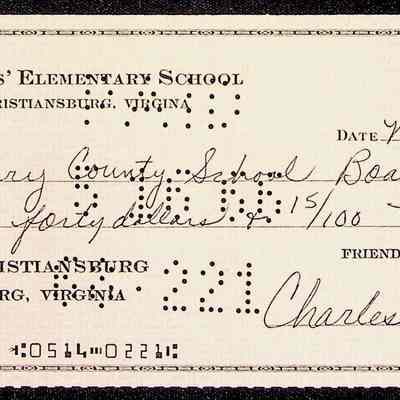 S' ELEMENTARY SCHOOL
RISTIANSBURG, VIRGINA
PAID
DATE
ry County School Boa
5 16 66
forty dollars & 15/100
FRIEND
RISTIANSBURG
RG, VIRGINIA
221
Charles
⑆0514⑉0221⑆